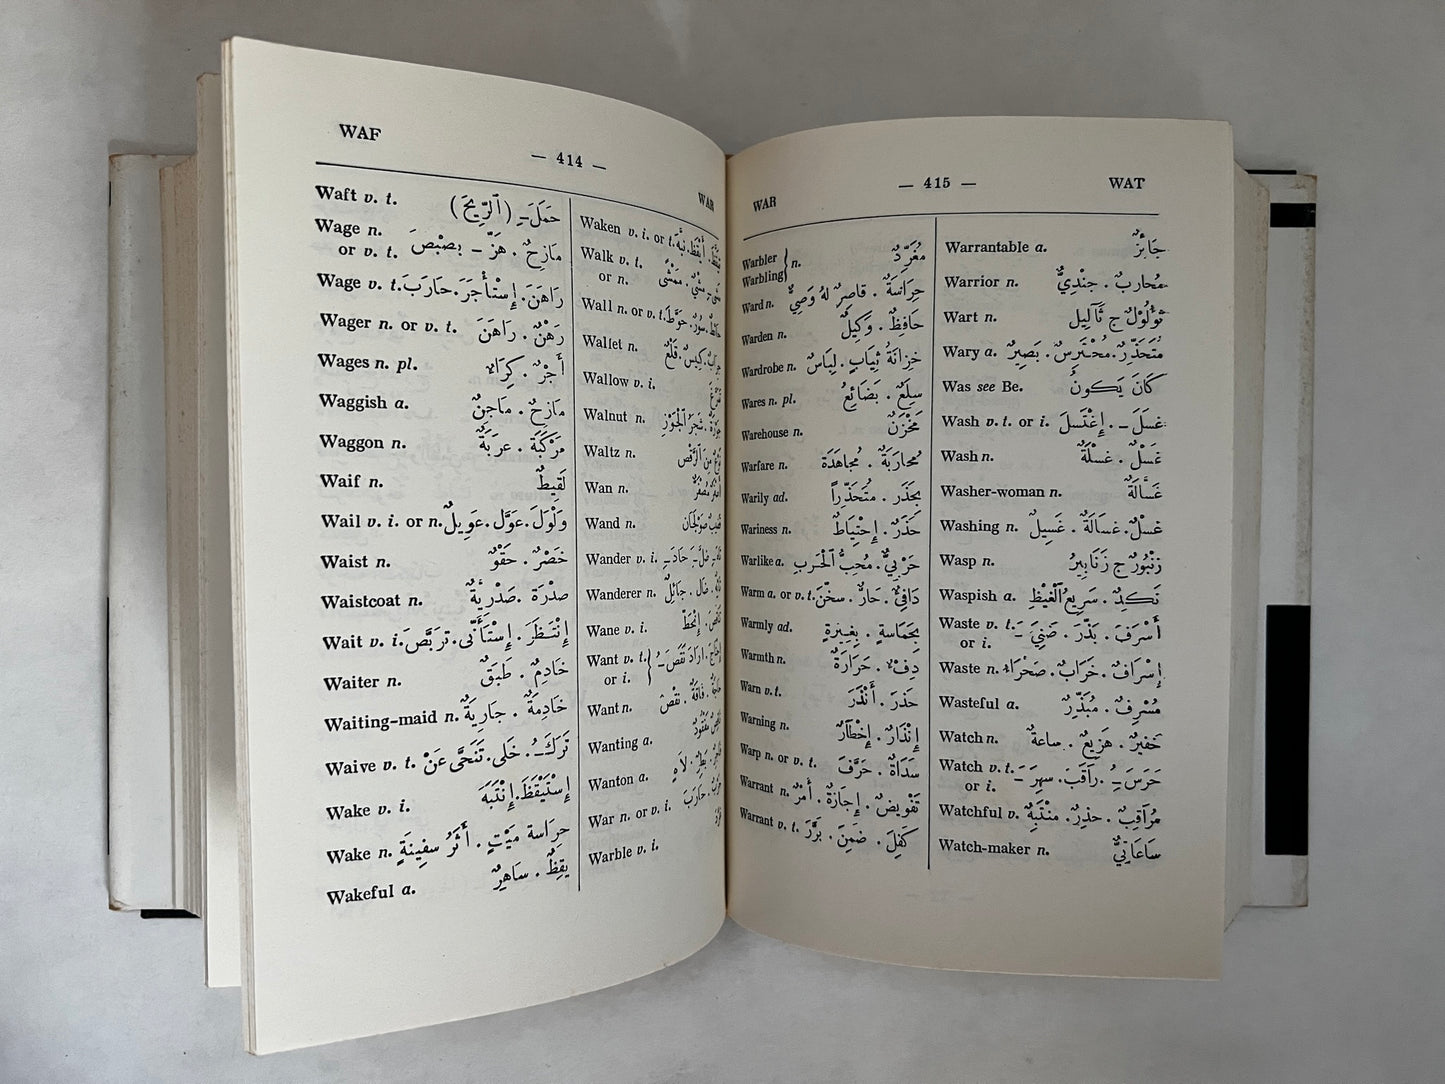 WAF
— 414 —
WAR
Waft v. t. حَمَلَـِ (ٱلرِّيحَ)
Wage n. مَازِحٌ . هَزّ ـ بصْبْصَ
or v. t.
Wage v. t. رَاهَنَ. إِسْتَأْجَرَ. حَارَبَ
Wager n. or v. t. رَهْنٌ . رَاهَنَ
Wages n. pl. أَجْرٌ . كِرَاءٌ
Waggish a. مَازِحٌ . مَاجِنٌ
Waggon n. مَرْكَبَةٌ . عربَةٌ
Waif n. لَقِيطٌ
Wail v. i. or n. وَلْوَلَ . عوَّل . عَوِيلٌ
Waist n. خَصْرٌ . حَقْوٌ
Waistcoat n. صدْرَة . صَدْرِيَّةٌ
Wait v. i. إِنْتَظَرَ . إِسْتَأْنَى . تربَّصَ
Waiter n. خَادِمٌ . طَبَقٌ
Waiting-maid n. خَادِمَةٌ . جارِيَةٌ
Waive v. t. تَرَكَـُ . خَلَى . تَنَحَّى عَنْ
Wake v. i. إِسْتَيْقَظَ . إِنْتَبَهَ
Wake n. حِرَاسة مَيْتٍ . أَثَرُ سفِينَةٍ
Wakeful a. يَقِظٌ . ساهِرٌ
Waken v. i. or t. تَيَقَّظَ. أَيْقَظَ. نبَّهَ
Walk v. t. مَشَى . مَشْيٌ . مَمْشًى
or n.
Wall n. or v. t. حَائِطٌ . سُورٌ . حَوَّطَ
Wallet n. جِرَابٌ . كِيسٌ . قَلْعٌ
Wallow v. i. تَمَرَّغَ
Walnut n. جَوْزَةٌ . شَجَرُ ٱلْجَوْزِ
Waltz n. نَوْعٌ مِنَ ٱلرَّقْصِ
Wan n. أَصْفَرُ مُصْفَرٌّ
Wand n. قَضِيبٌ صَوْلَجَان
Wander v. i. تَاهَـِ . ضلَّـ . حَادَـِ
Wanderer n. تَائِهٌ . ضَالٌ . جَائِلٌ
Wane v. i. نَقَصَ . إِنْحَطَّ
Want v. t. إِحْتَاجَ . ارَادَ . نَقَصَـُ
or i.
Want n. حَاجَةٌ . فَاقَةٌ . نَقْصٌ
Wanting a. نَاقِصٌ مَفْقُودٌ
Wanton a. فَاجِرٌ . بَطِرٌ . لَاهٍ
War n. or v. i. حَرْبٌ . حَارَبَ
Warble v. i. غَرَّدَ
WAR
— 415 —
WAT
Warbler
Warbling n. مُغَرِّدٌ
Ward n. حِرَاسَةٌ . قاصِرٌ لهُ وَصِيٌّ
Warden n. حَافِظٌ . وَكِيلٌ
Wardrobe n. خِزَانَةُ ثِيَابٍ . لِبَاسٌ
Wares n. pl. سِلَعٌ . بَضَائِعُ
Warehouse n. مَخْزَنٌ
Warfare n. مُحاربَةٌ . مُجاهَدَة
Warily ad. بِحَذَر . مُتَحَذِّراً
Wariness n. حَذَرٌ . إِحْتِيَاطٌ
Warlike a. حَرْبِيٌّ . مُحِبُّ ٱلْحَربِ
Warm a. or v. t. دَافِئٌ . حَارٌّ . سخَّنَ
Warmly ad. بِحَمَاسَةٍ . بِغِيرَةٍ
Warmth n. دِفْءٌ . حَرَارَةٌ
Warn v. t. حَذَرَ . أَنْذَرَ
Warning n. إِنْذَارٌ . إِخْطَارٌ
Warp n. or v. t. سَدَاةٌ . حَرَّفَ
Warrant n. تَفْوِيضٌ . إِجَازَةٌ . أَمْرٌ
Warrant v. t. كَفِلَ . ضَمِنَ . برَّرَ
Warrantable a. جَائِزٌ
Warrior n. مُحَاربٌ . جنْدِيٌّ
Wart n. ثُؤْلُولٌ ج ثَآلِيل
Wary a. مُتَحَذِّرٌ . مُحْتَرِسٌ . بَصِيرٌ
Was see Be. كَانَ يَكونُ
Wash v. t. or i. غسَلَ ـِ . إِغْتَسلَ
Wash n. غَسْلٌ . غسْلَةٌ
Washer-woman n. غَسَّالَةٌ
Washing n. غسْلٌ . غسَالَةٌ . غَسِيلٌ
Wasp n. زنْبُورٌ ج زَنَابِيرُ
Waspish a. نَكِدٌ . سَرِيعُ ٱلْغَيْظِ
Waste v. t. أَسْرَفَ . بَذَّرَ . ضَنِيَ ـَ
or i.
Waste n. إِسْرَافٌ . خَرَابٌ . صَحْرَاءُ
Wasteful a. مُسْرِفٌ . مُبَذِّرٌ
Watch n. خَفِيرٌ . هَزِيعٌ . ساعةٌ
Watch v. t. حَرَسَ ـُ . رَاقَبَ . سهِرَ ـَ
or i.
Watchful v. مُرَاقِبٌ . حذِرٌ . منْتَبِهٌ
Watch-maker n. سَاعَاتِيٌّ